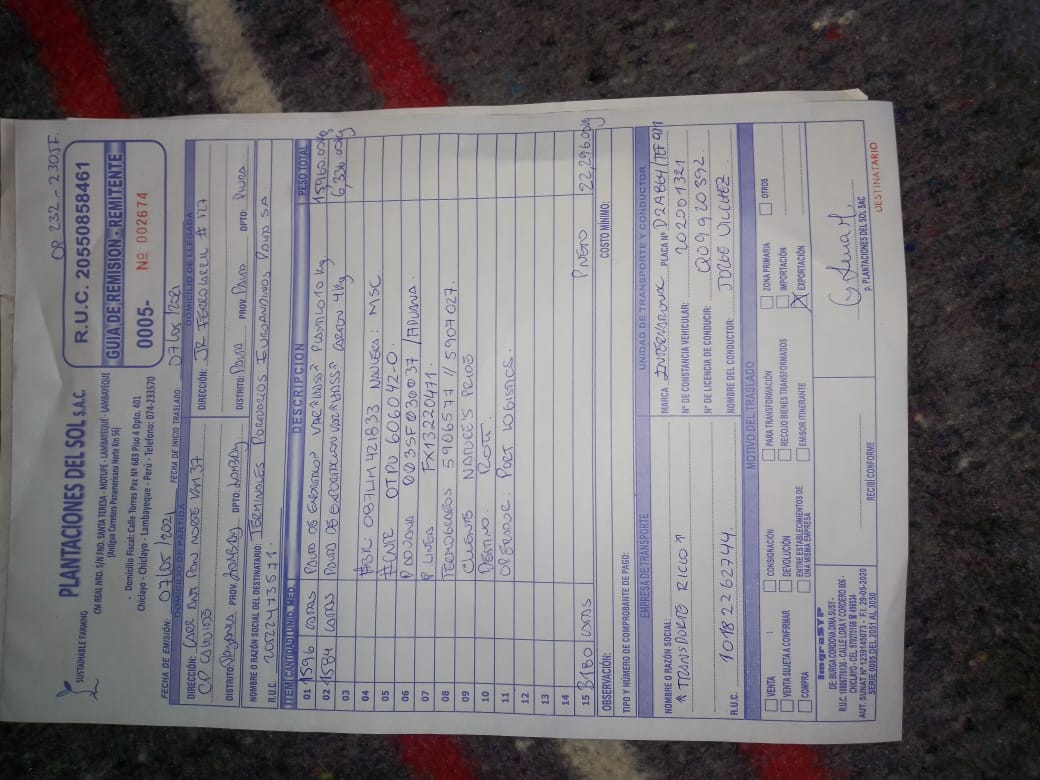 OR 232-2305F.
SUSTAINABLE FARMING
PLANTACIONES DEL SOL S.A.C.
CM REAL NRO. S/N FND. SANTA TERESA - MOTUPE - LAMBAYEQUE - LAMBAYEQUE
(Antigua Carretera Panamericana Norte Km 56)
· Domicilio Fiscal: Calle Torres Paz Nº 683 Piso 4 Dpto. 401
Chiclayo - Chiclayo - Lambayeque - Perú - Telefono: 074-233570
R.U.C. 20550858461
GUIA DE REMISION - REMITENTE
0005- Nº 002674
FECHA DE EMISIÓN: 07/05/2021 FECHA DE INICIO TRASLADO: 07/05/2021
DOMICILIO DE PARTIDA DOMICILIO DE LLEGADA
DIRECCIÓN: CARR PAN NORTE KM 37 DIRECCIÓN: JR FERROCARRIL # 127
DISTRITO: PROV. DPTO: DISTRITO: PAITA PROV. PAITA DPTO: PIURA
NOMBRE O RAZÓN SOCIAL DEL DESTINATARIO: TERMINALES PORTUARIOS EUROANDINOS PAITA SA
R.U.C. 20522473571
ITEM CANTIDAD UNID. MED. DESCRIPCION PESO TOTAL
01 1596 CAJAS PALTO DE EXPORTACION VAR HASS PLASTICO 10 kg 15,960.00 kg
02 1584 CAJAS PALTO DE EXPORTACION VAR HASS CARTON 4kg 6,336.00kg
03
04 #BK 087LM421833 NAVIERA: MSC
05 #CNTR OTPU 606042-0
06 P ADUANA 003SF030037 / ADUANA
07 P LINEA FX13220471
08 TERMOGRAFOS 5906577 // 5907027.
09 CLIENTE NATURE'S PRIDE
10 DESTINO. ROTT.
11 OPERADOR: PORT LOGISTICS.
12
13
14
15 3180 CAJAS P NETO 22,296.00 kg
OBSERVACIÓN: COSTO MÍNIMO:
TIPO Y NÚMERO DE COMPROBANTE DE PAGO:
EMPRESA DE TRANSPORTE UNIDAD DE TRANSPORTE Y CONDUCTOR
NOMBRE O RAZÓN SOCIAL: MARCA INTERNATIONAL PLACA Nº D2A864/TEF981
TRANSPORTE RICO Nº DE CONSTANCIA VEHICULAR: 202001321
Nº DE LICENCIA DE CONDUCIR: Q09920392
R.U.C. 10182262744 NOMBRE DEL CONDUCTOR: JORGE VILCHEZ
MOTIVO DEL TRASLADO
VENTA CONSIGNACIÓN PARA TRANSFORMACIÓN ZONA PRIMARIA OTROS
VENTA SUJETA A CONFIRMAR DEVOLUCIÓN RECOJO BIENES TRANSFORMADOS IMPORTACIÓN
COMPRA ENTRE ESTABLECIMIENTOS DE UNA MISMA EMPRESA EMISOR ITINERANTE EXPORTACIÓN
ImgraSTP
DE: BURGA CORDOVA DINA SUSY -
AUT. SUNAT Nº 1239145073 - F.I. 29-05-2020
SERIE 0005 DEL 2051 AL 3050
RECIBÍ CONFORME
P. PLANTACIONES DEL SOL SAC
DESTINATARIO